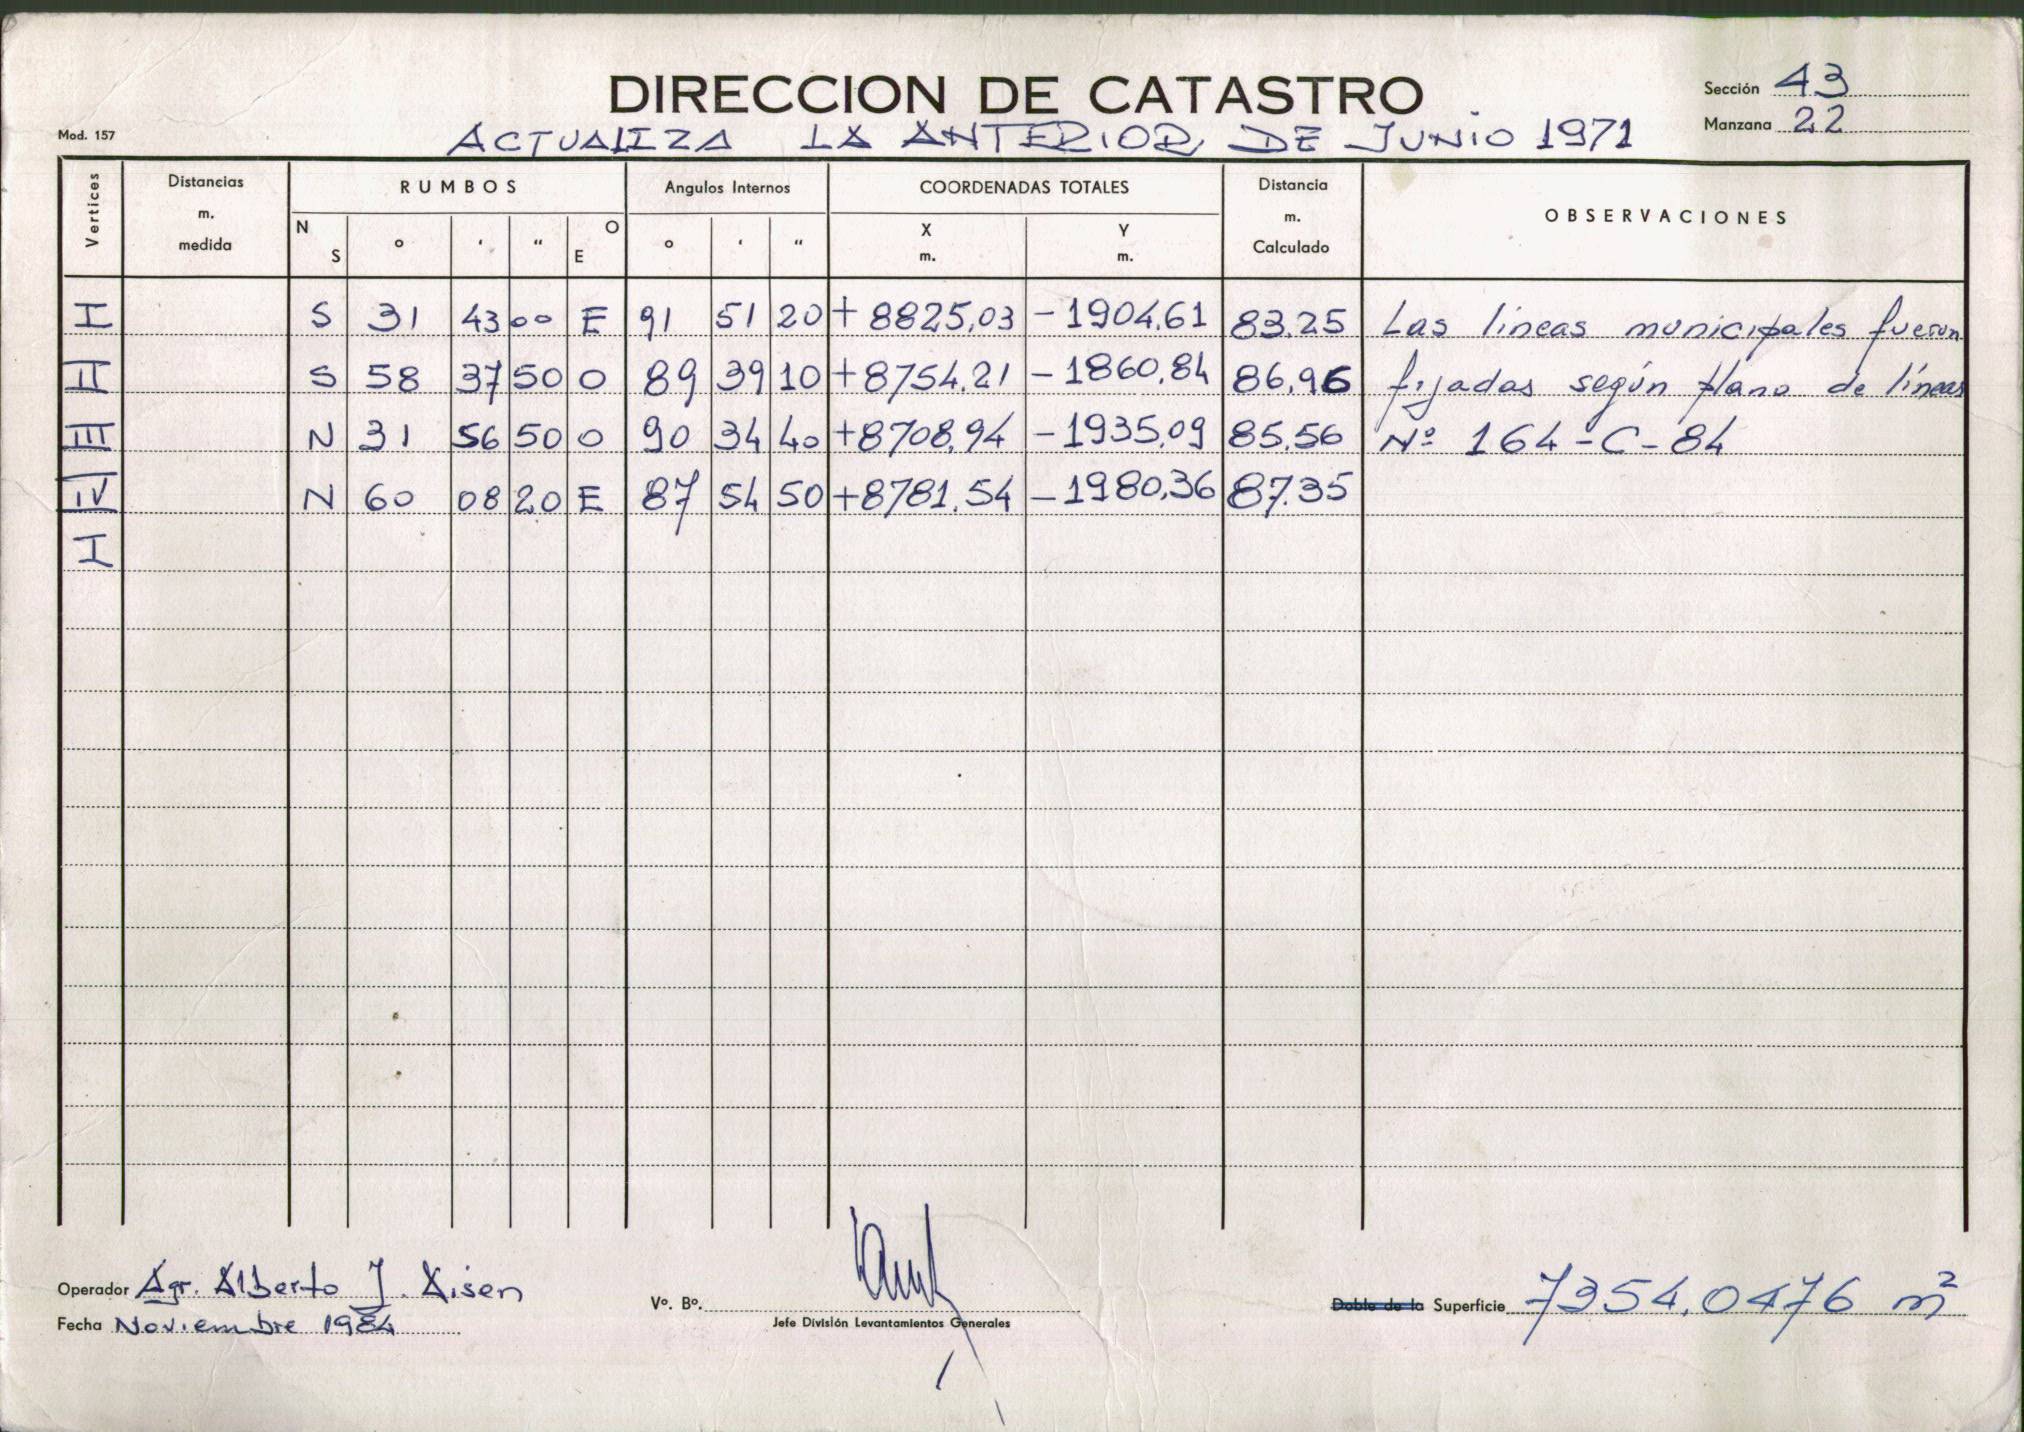 DIRECCION DE CATASTRO
Sección 43
Manzana 22
Mod. 157
ACTUALIZA LA ANTERIOR DE JUNIO 1971
Vertices Distancias m. medida RUMBOS Angulos Internos COORDENADAS TOTALES Distancia m. Calculado OBSERVACIONES
N S ° ' " O E ° ' " X m. Y m.
I S 31 43 00 E 91 51 20 +8825,03 -1904,61 83.25 Las líneas municipales fueron
II S 58 37 50 O 89 39 10 +8754,21 -1860,84 86,96 fijadas según plano de líneas
III N 31 56 50 O 90 34 40 +8708,94 -1935,09 85.56 Nº 164-C-84
IV N 60 08 20 E 87 54 50 +8781,54 -1980,36 87.35
I
Operador Agr. Alberto J. Aisen
Fecha Noviembre 1984
Vº. Bº.
Jefe División Levantamientos Generales
Doble de la Superficie 7354,0476 m²